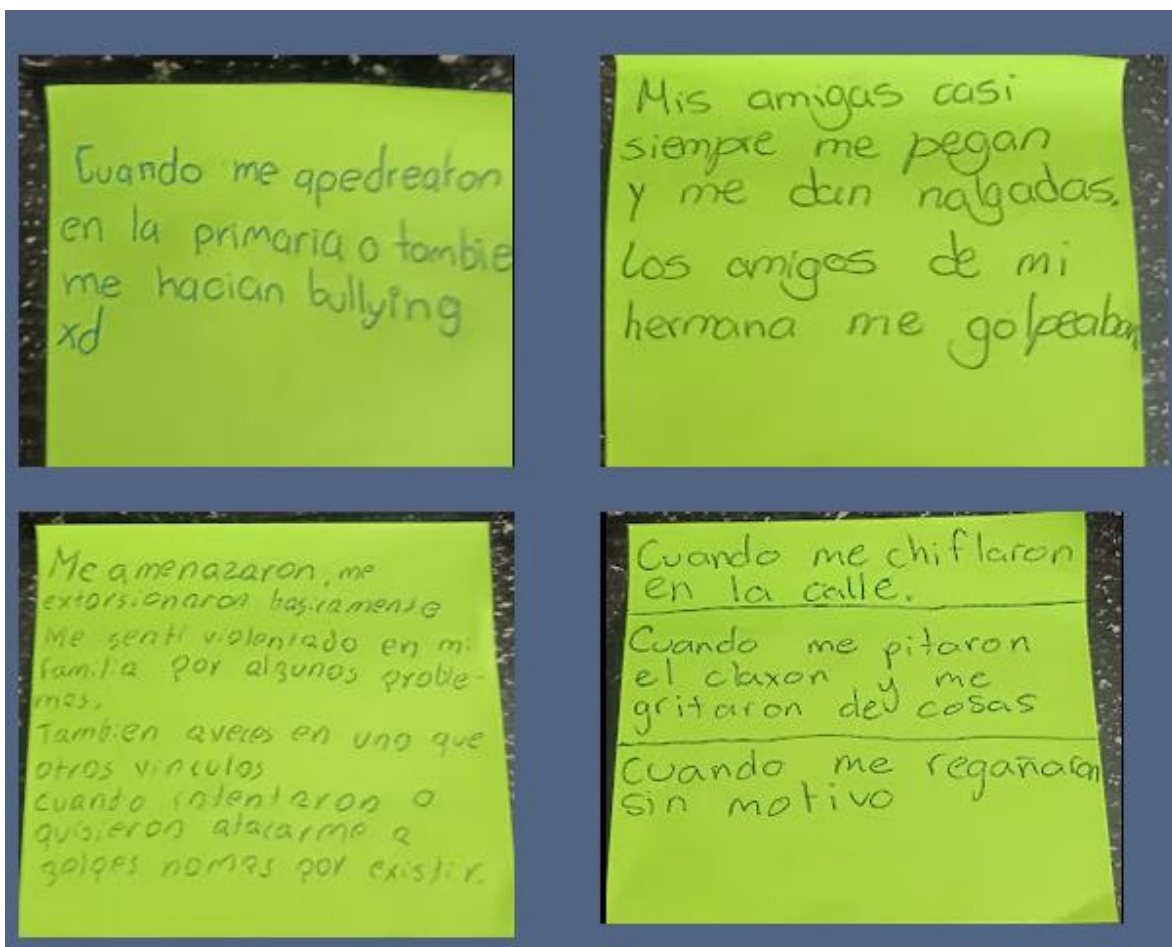 Cuando me apedrearon
en la primaria o tambie
me hacian bullying
xd
Mis amigas casi
siempre me pegan
y me dan nalgadas.
Los amigos de mi
hermana me golpeaban
Me amenazaron, me
extorsionaron basicamente
Me senti violentado en mi
familia por algunos proble-
mas.
Tambien aveces en uno que
otros vinculos
cuando intentaron o
quisieron atacarme a
golpes nomas por existir.
Cuando me chiflaron
en la calle.
Cuando me pitaron
el claxon y me
gritaron de cosas
Cuando me regañaron
sin motivo